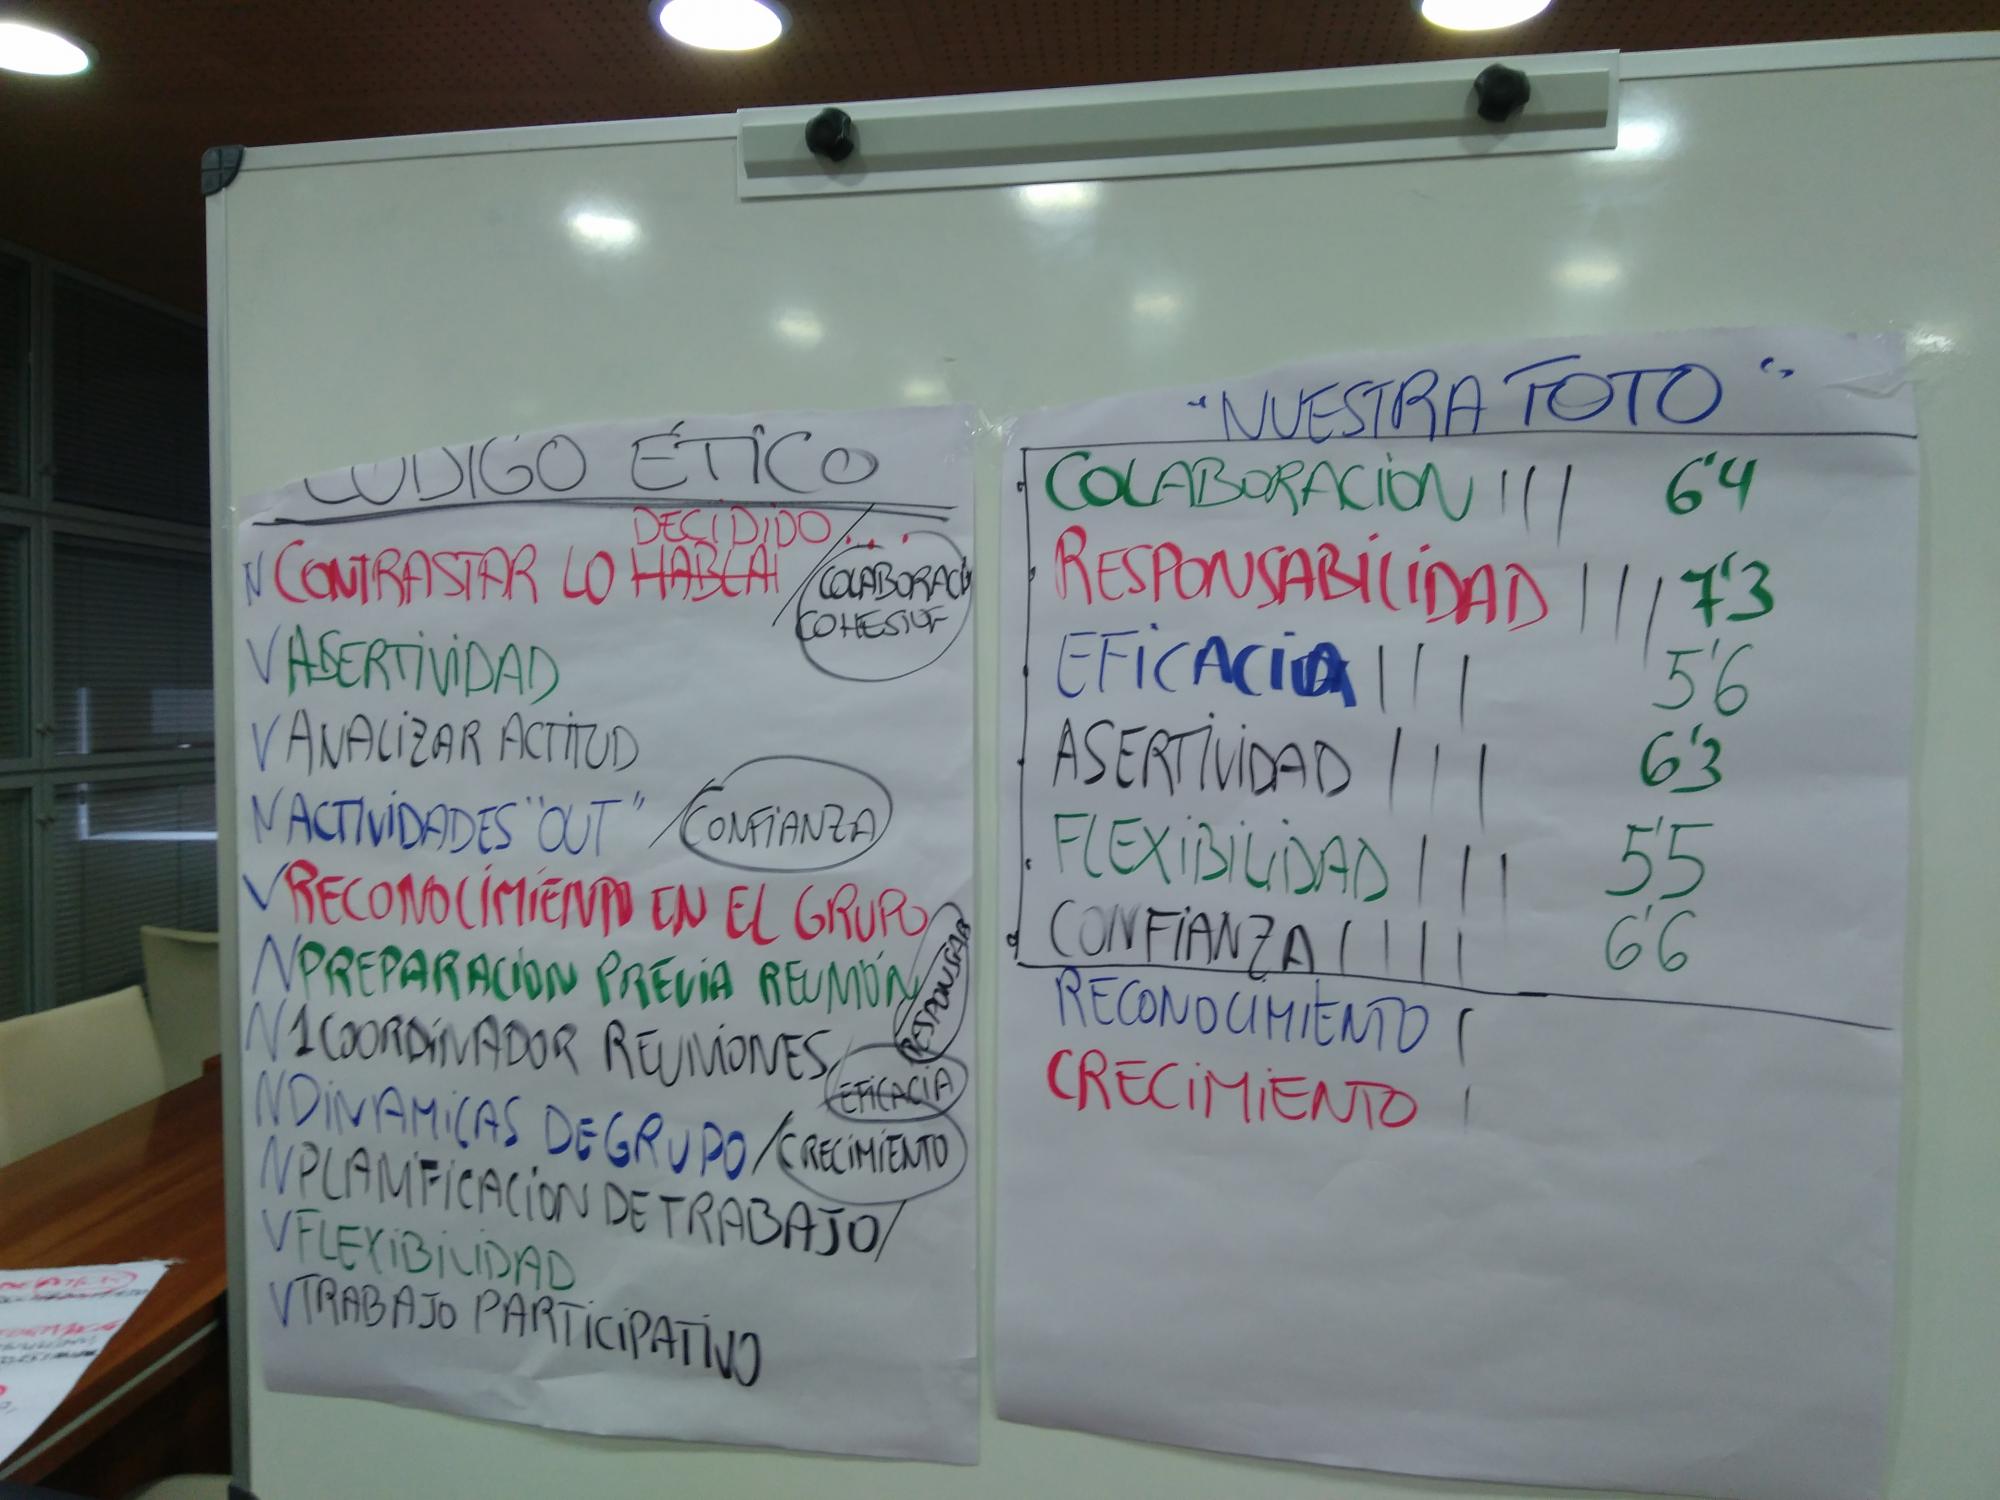 CÓDIGO ÉTICO
DECIDIDO...
N CONTRASTAR LO HABLAI / COLABORACI
COHESIÓN
V ASERTIVIDAD
V ANALIZAR ACTITUD
N ACTIVIDADES "OUT" / CONFIANZA
V RECONOCIMIENTO EN EL GRUPO
N PREPARACIÓN PREVIA REUNIÓN
RESPONSAB
N 1 COORDINADOR REUNIONES /
EFICACIA
N DINAMICAS DE GRUPO / CRECIMIENTO
N PLANIFICACION DE TRABAJO /
V FLEXIBILIDAD
V TRABAJO PARTICIPATIVO
"NUESTRA FOTO"
COLABORACIÓN ||| 6'4
RESPONSABILIDAD ||| 7'3
EFICACIA ||| 5'6
ASERTIVIDAD ||| 6'3
FLEXIBILIDAD ||| 5'5
CONFIANZA |||| 6'6
RECONOCIMIENTO |
CRECIMIENTO |